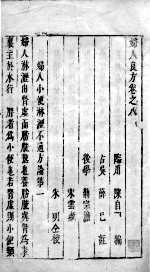 婦人良方卷之八
臨川 陳自明 編
古吳 薛己 註
後學
朱明
婦人小便淋瀝不通方論第一
婦人淋瀝由腎虛而膀胱熱也蓋膀胱與腎為表
裏主於水行 胞者為小便也若腎虛則小便頻